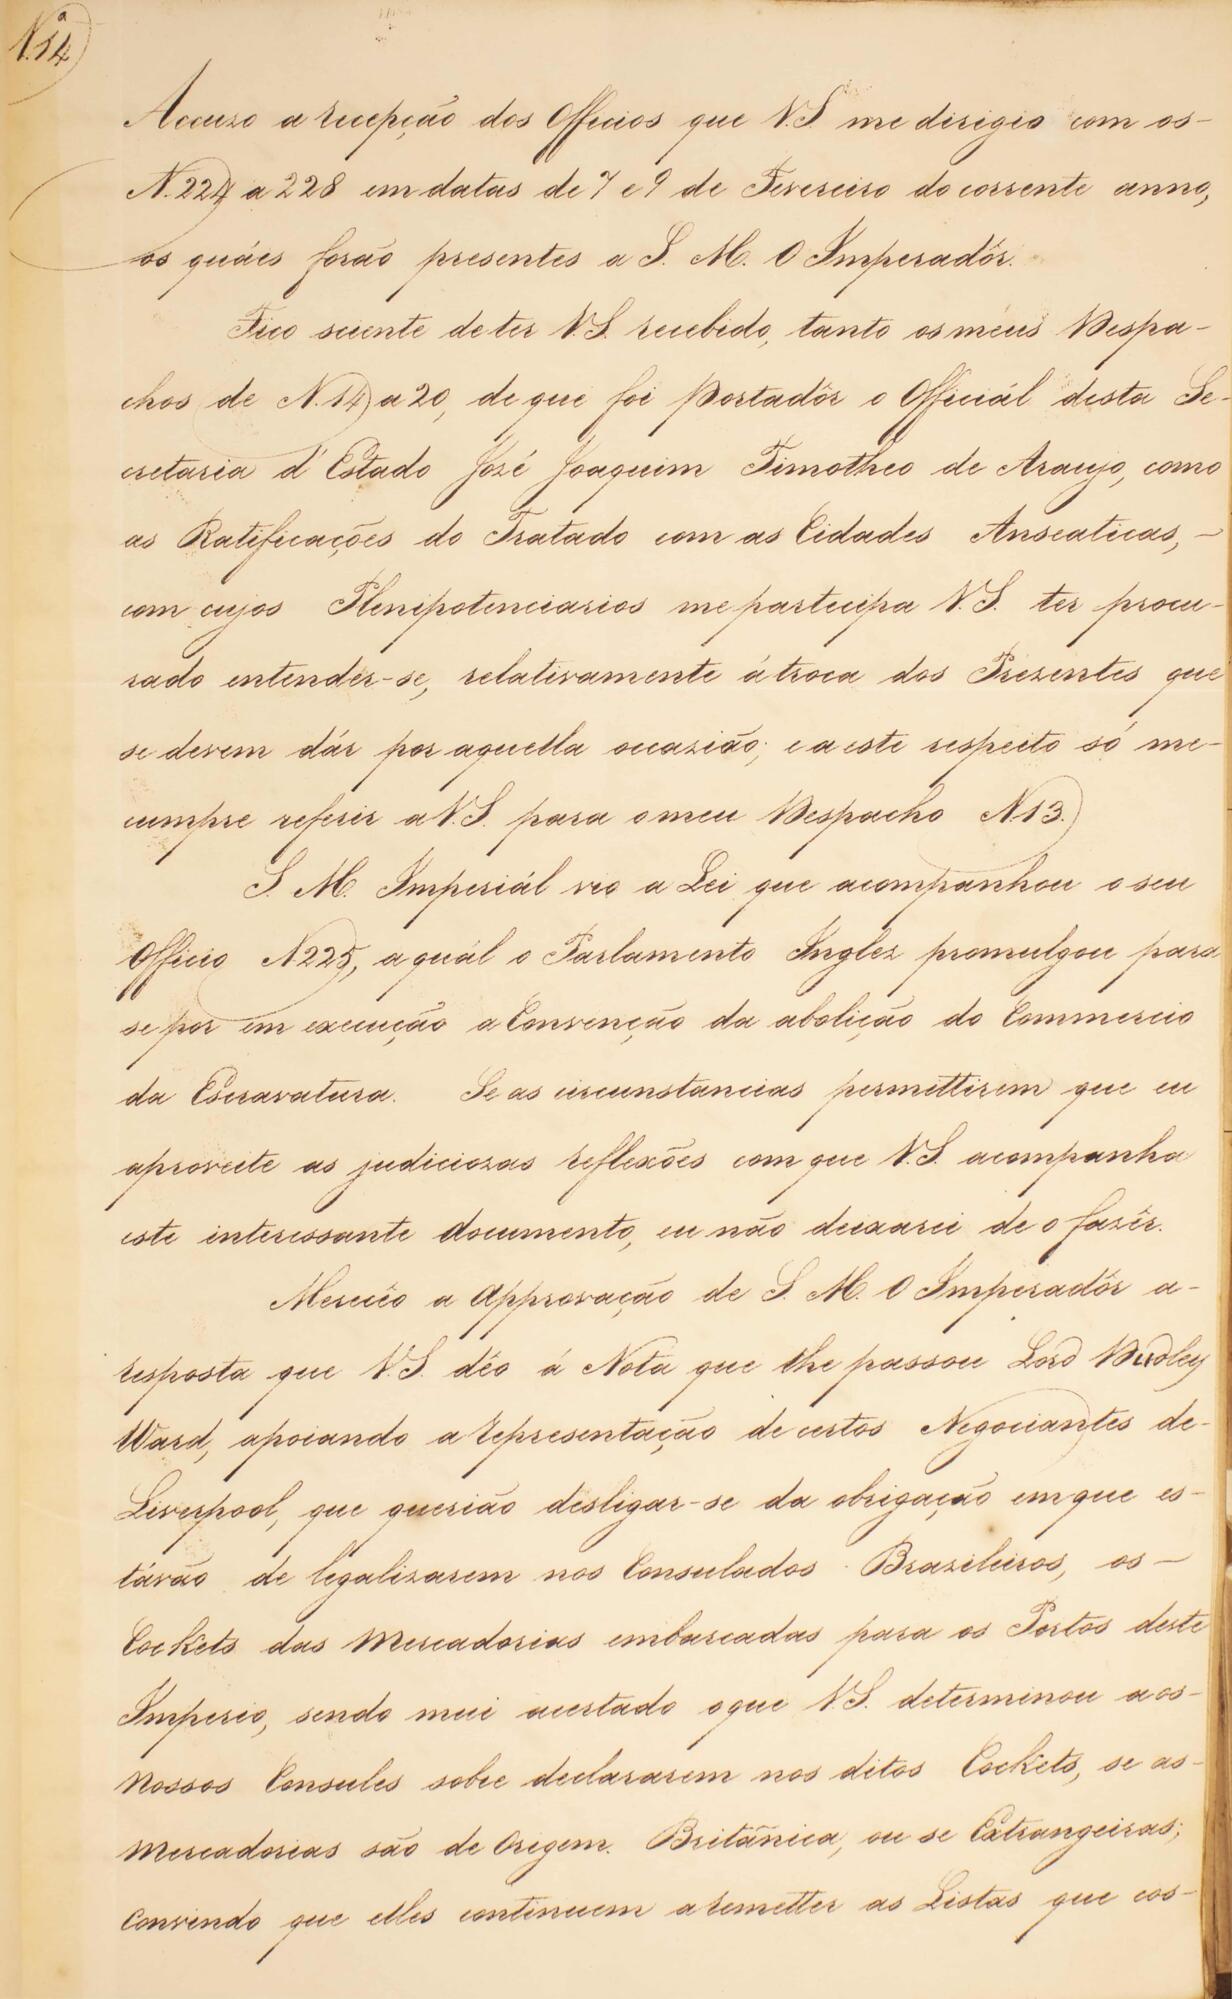 N.º 14
Accuzo a recepção dos Officios que V.S. me dirigio com os-
N. 224 a 228 em datas de 7 e 9 de Fevereiro do corrente anno,
os quáes forão presentes a S. M. O Imperadôr.
Fico sciente de ter V.S. recebido, tanto os meus Despa-
chos de N. 14 a 20, de que foi Portadôr o Officiál desta Se-
cretaria d'Estado José Joaquim Timotheo de Araujo, como
as Ratificações do Tratado com as Cidades Anseaticas, -
com cujos Plenipotenciarios me participa V.S. ter procu-
rado entender-se, relativamente á troca dos Prezentes que
se devem dár por aquella occazião; e a este respeito só me-
cumpre referir a V.S. para o meu Despacho N. 13.
S. M. Imperiál vio a Lei que acompanhou o seu
Officio N. 225, a quál o Parlamento Inglez promulgou para
se por em execução a Convenção da abolição do Commercio
da Escravatura. Se as circunstancias permittirem que eu
aproveite as judiciozas reflexões com que V.S. acompanha
este interessante documento, eu não deixarei de o fazêr.
Merecêo a Approvação de S. M. O Imperadôr a-
resposta que V.S. déo á Nota que lhe passou Lord Dudley
Ward, apoiando a representação de certos Negociantes de-
Liverpool, que querião desligar-se da obrigação em que es-
távão de legalizarem nos Consulados Brazileiros, os -
Cockets das Mercadorias embarcadas para os Portos deste
Imperio, sendo mui acertado o que V.S. determinou aos-
Nossos Consules sobre declararem nos ditos Cockets, se as-
Mercadorias são de Origem Británica, ou se Extrangeiras;
Convindo que elles continuem a remetter as Listas que cos-